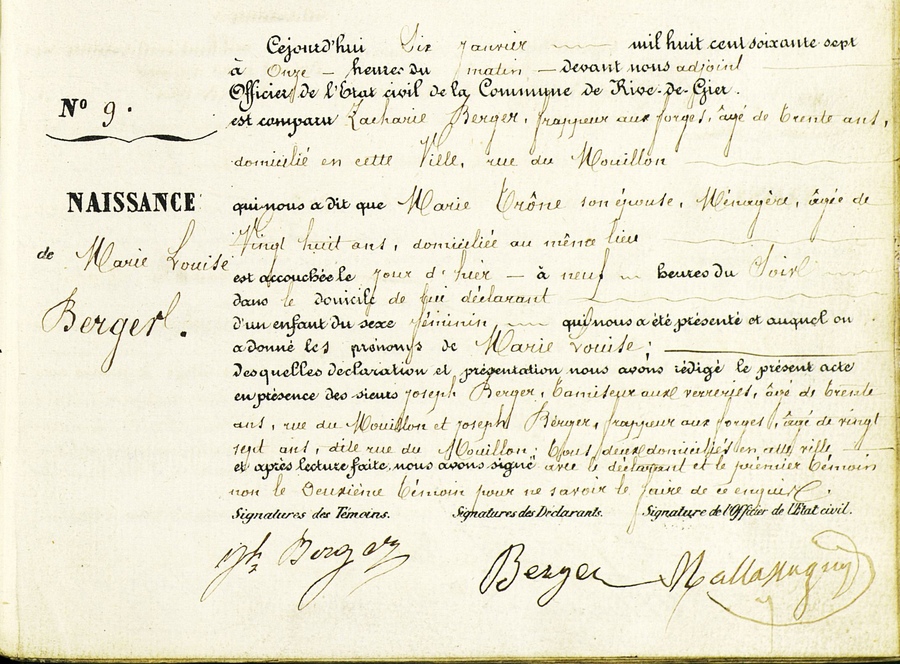 Cejourd'hui Six Janvier mil huit cent soixante sept
à Onze heures du matin devant nous adjoint
Officier de l'Etat civil de la Commune de Rive-de-Gier.
N° 9.
est comparu Zacharie Berger, frappeur aux forges, âgé de trente ans,
domicilié en cette Ville, rue du Mouillon
NAISSANCE
qui nous a dit que Marie Trône son épouse, Ménagère, âgée de
Vingt huit ans, domiciliée au même lieu
de Marie Louise
Berger.
est accouchée le jour d'hier à neuf heures du Soir
dans le domicile de lui déclarant
d'un enfant du sexe féminin qui nous a été présenté et auquel on
a donné les prénoms de Marie Louise;
desquelles déclaration et présentation nous avons rédigé le présent acte
en présence des sieurs Joseph Berger, tamiseur aux verreries, âgé de trente
ans, rue du Mouillon et Joseph Berger, frappeur aux forges, âgé de vingt
sept ans, dite rue du Mouillon, tous deux domiciliés en cette ville
et après lecture faite, nous avons signé avec le déclarant et le premier témoin
non le Deuxième témoin pour ne savoir le faire de ce enquis.
Signatures des Témoins. Signatures des Déclarants. Signature de l'Officier de l'Etat civil.
Jh Berger Berger